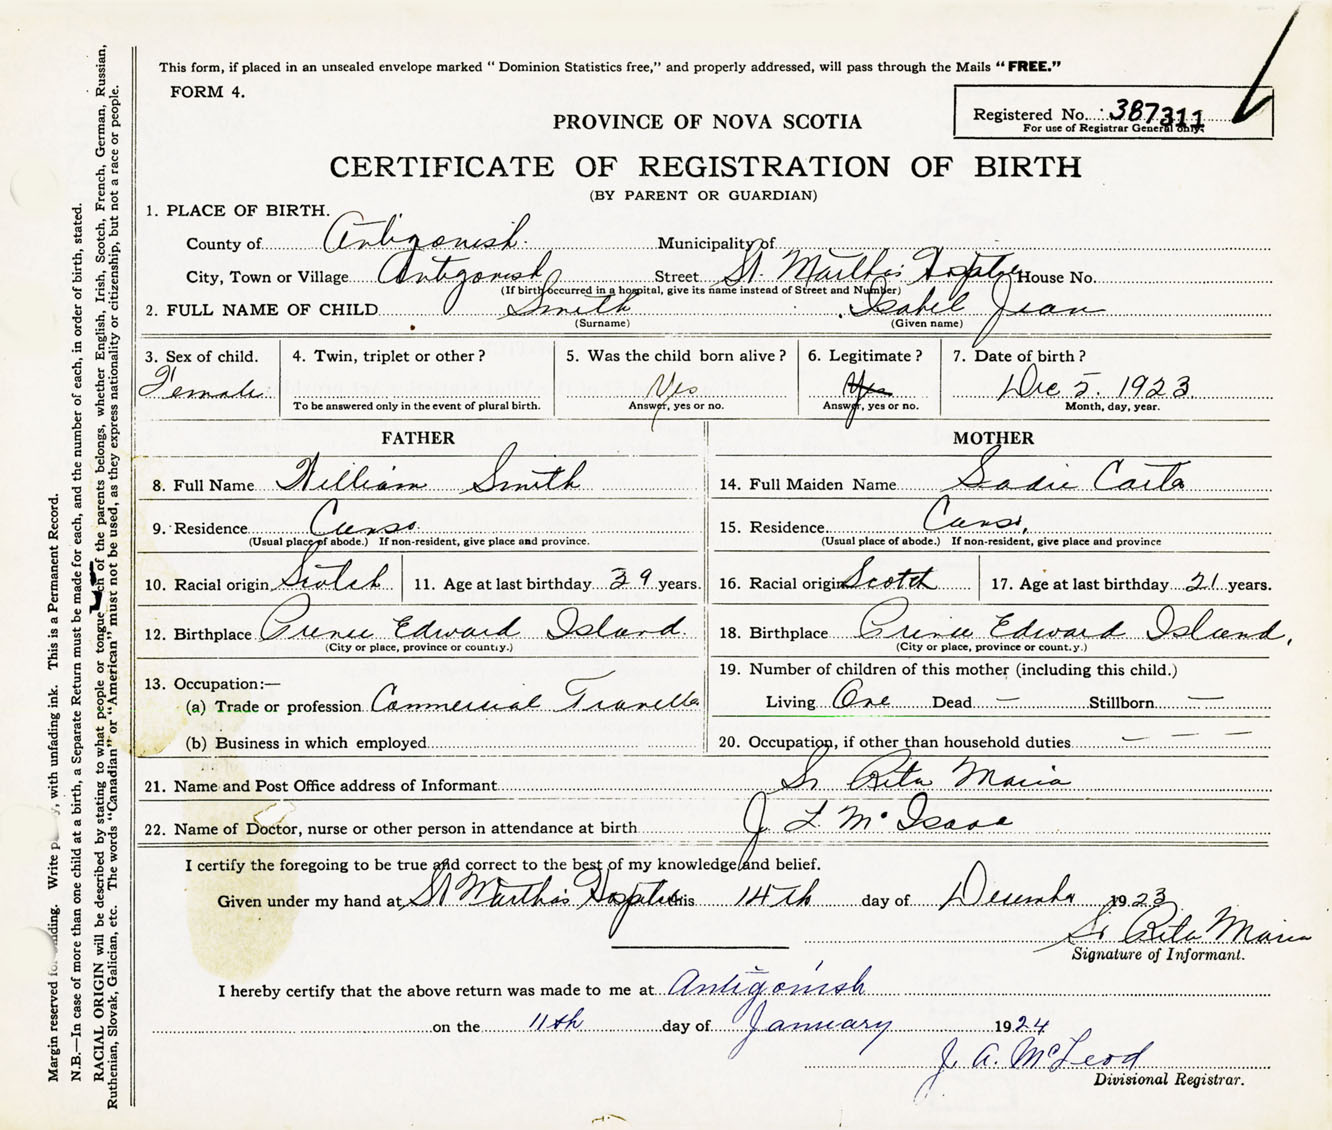 This form, if placed in an unsealed envelope marked “ Dominion Statistics free,” and properly addressed, will pass through the Mails “FREE.”
FORM 4.
Registered No. 387311
For use of Registrar General only.
PROVINCE OF NOVA SCOTIA
CERTIFICATE OF REGISTRATION OF BIRTH
(BY PARENT OR GUARDIAN)
1. PLACE OF BIRTH.
County of Antigonish Municipality of
City, Town or Village Antigonish Street St. Martha's Hospital House No.
(If birth occurred in a hospital, give its name instead of Street and Number)
2. FULL NAME OF CHILD Smith Isabel Jean
(Surname) (Given name)
3. Sex of child. 4. Twin, triplet or other? 5. Was the child born alive? 6. Legitimate? 7. Date of birth?
Female Yes Yes Dec 5. 1923
To be answered only in the event of plural birth. Answer, yes or no. Answer, yes or no. Month, day, year.
FATHER MOTHER
8. Full Name William Smith 14. Full Maiden Name Sadie
9. Residence Canso 15. Residence Canso,
(Usual place of abode.) If non-resident, give place and province. (Usual place of abode.) If non-resident, give place and province
10. Racial origin Scotch 11. Age at last birthday 39 years. 16. Racial origin Scotch 17. Age at last birthday 21 years.
12. Birthplace Prince Edward Island 18. Birthplace Prince Edward Island,
(City or place, province or country.) (City or place, province or country.)
13. Occupation:—
(a) Trade or profession Commercial Traveller
(b) Business in which employed
19. Number of children of this mother (including this child.)
Living One Dead — Stillborn —
20. Occupation, if other than household duties — — — —
21. Name and Post Office address of Informant Sr Rita Maria
22. Name of Doctor, nurse or other person in attendance at birth J L McIsaac
I certify the foregoing to be true and correct to the best of my knowledge and belief.
Given under my hand at St Martha's Hospital this 14th day of December 1923
Sr Rita Maria
Signature of Informant.
I hereby certify that the above return was made to me at Antigonish
on the 11th day of January 1924
J. A. McLeod
Divisional Registrar.
Margin reserved for binding. Write , with unfading ink. This is a Permanent Record.
N.B.—In case of more than one child at a birth, a Separate Return must be made for each, and the number of each, in order of birth, stated.
RACIAL ORIGIN will be described by stating to what people or tongue each of the parents belongs, whether English, Irish, Scotch, French, German, Russian,
Ruthenian, Slovak, Galician, etc. The words “Canadian” or “American” must not be used, as they express nationality or citizenship, but not a race or people.